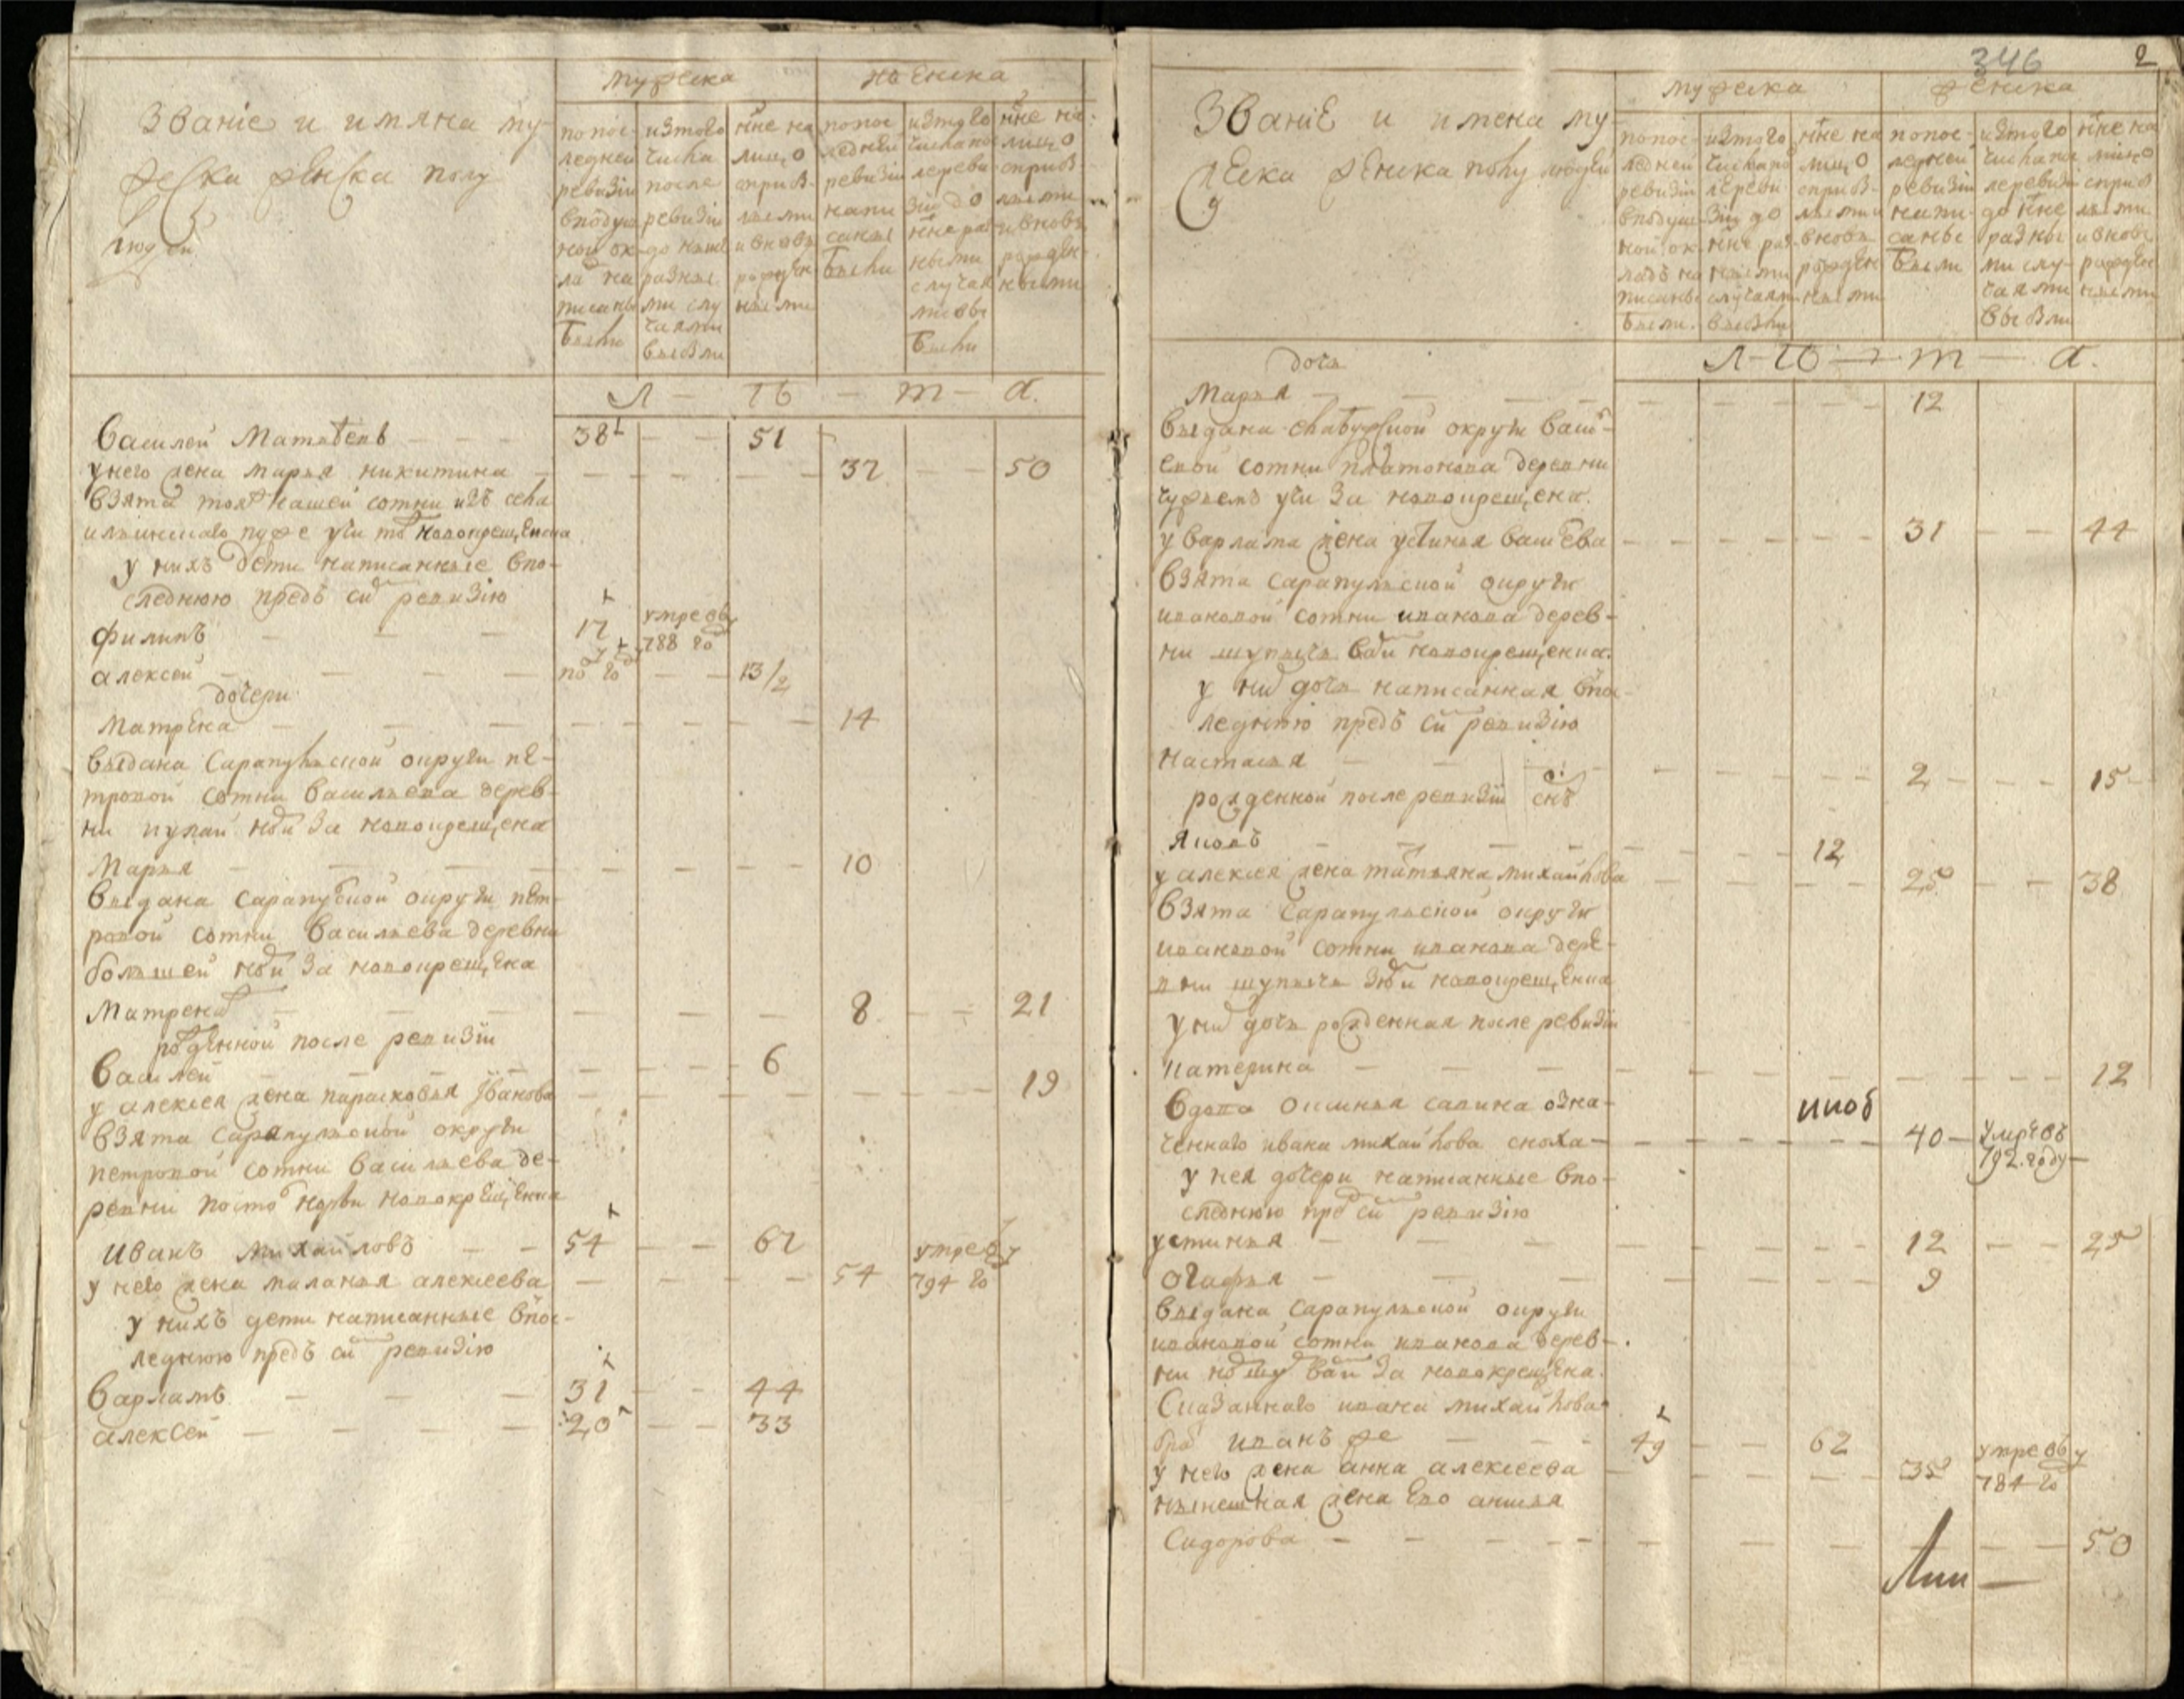 Званіе и имяна му-
жеска женска полу
людей
мужеска
женска
попос-
ледней
ревизіи
вподуш
ной ок-
ла на
писаны
были
изтого
числа
после
ревизіи
до ныне
разны
ми слу
чаями
выбыли
нне на
лицо
сприб-
лыми
и вновь
рожден
ными
попос
ледней
ревизіи
напи
саны
были
изтого
числа по
слереви
зіи до
нне раз
ными
случая
ми вы
были
нне на
лицо
сприб-
лыми
и вновь
рожден-
ными
Л – Ѣ – т – а.
Василей Матвѣевъ 38 51
унего жена марья никитина 37 50
взята тояж нашей сотни изъ села
новокрещенка
у нихъ дети написанные впо-
следнюю предъ сй ревизію
филипъ 17 умре въ
788 го
алексей 13/2
дочери
матрена 14
выдана Сарапульской округи пе-
тровой сотни Васильева дерев-
ни за новокрещена
Марья 10
выдана Сарапулской округи пет-
ровой сотни Васильева деревни
большей за новокрещена
Матрена 8 21
рожденной после ревизіи
Василей 6
у алексея жена парасковья Іванова 19
взята Сарапульской округи
петровой сотни Васильева де-
ревни новокрещенка
иванъ михайловъ 54 67
у него жена маланья алексеева 54 умре въ
794 го
у нихъ дети написанные впос-
леднюю предъ сй ревизію
Варламъ 31 44
алексей 20 33
346 2
Званіе и имена му-
жеска женска полу людей
мужеска
женска
попос-
ледней
ревизіи
вподуш
ной ок-
ладъ на
писаны
были.
изтого
числапо
слереви
зіи до
нне раз
ными
случаями
выбыли
нне на
лицо
сприб-
лыми и
вновь
рожден
ными
попос-
ледней
ревизіи
напи-
саны
были
изтого
числа по
слеревизіи
до нне
разны
ми слу-
чаями
выбыли
нне на
лицо
сприб
лыми
и вновь
рожден
ными
Л – Ѣ – т – а.
дочь
Марья 12
выдана округи
сотни платонова деревни
за новокрещена.
у варлама жена устинья 31 44
взята Сарапульской округи
ивановой сотни иванова дерев-
ни новокрещенка.
у ни дочь написанная впос-
леднюю предъ сй ревизію
настасья 2 15
рожденной после ревизіи снъ
яковъ 12
у алексея жена татьяна михайлова 25 38
взята Сарапульской округи
ивановой сотни иванова дере-
вни новокрещенка
у ни дочь рожденная после ревизіи
катерина 12
вдова озна-
ченнаго ивана михайлова сноха 40 умре въ
792. году
у нея дочери написанные впо-
следнюю пре сй ревизію
устинья 12 25
огафья 9
выдана Сарапульской округи
ивановой сотни иванова дерев-
ни за новокрещена.
Сказаннаго ивана михайлова
бра иванъ же 49 62
у него жена анна алексеева 35 умре въ
784 го
нынешная жена ево
Сидорова 50